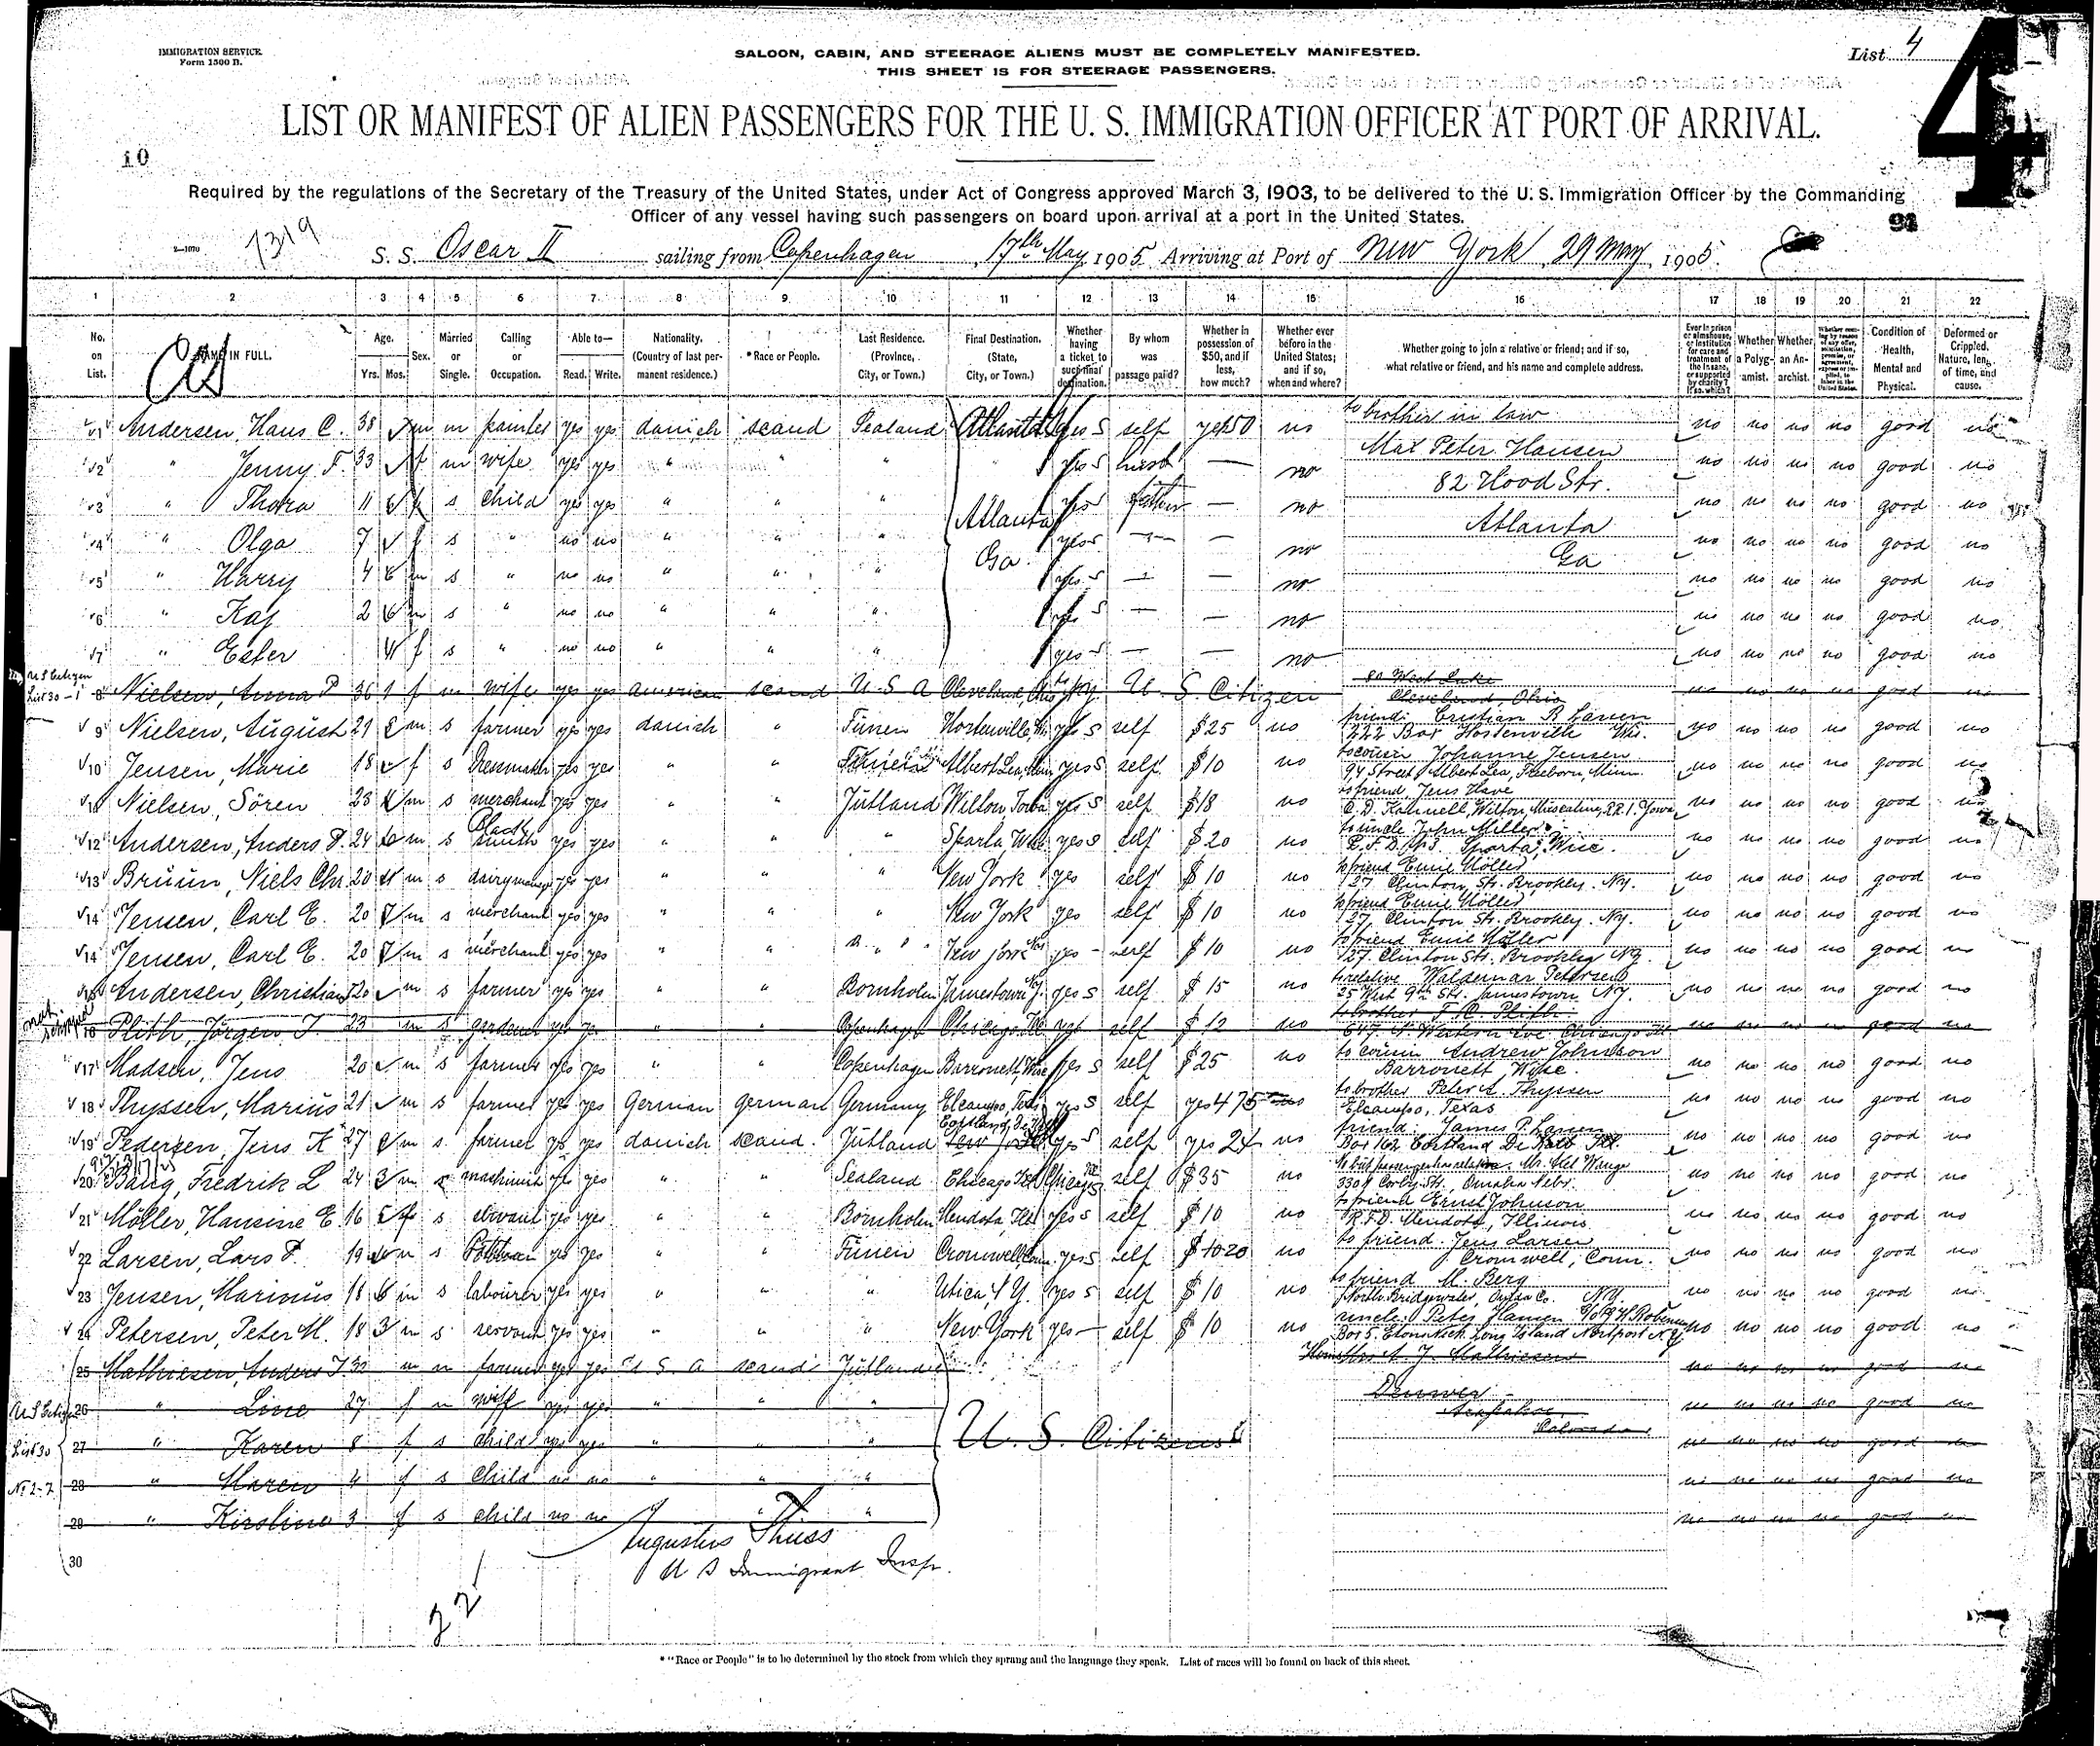 IMMIGRATION SERVICE.
Form 1500 B.
SALOON, CABIN, AND STEERAGE ALIENS MUST BE COMPLETELY MANIFESTED.
THIS SHEET IS FOR STEERAGE PASSENGERS.
List 4
4
LIST OR MANIFEST OF ALIEN PASSENGERS FOR THE U. S. IMMIGRATION OFFICER AT PORT OF ARRIVAL.
10
Required by the regulations of the Secretary of the Treasury of the United States, under Act of Congress approved March 3, 1903, to be delivered to the U. S. Immigration Officer by the Commanding
Officer of any vessel having such passengers on board upon arrival at a port in the United States.
7319
S. S. Oscar II sailing from Copenhagen 17th May 1905 Arriving at Port of New York 29 May 1905.
1 2 3 4 5 6 7 8 9 10 11 12 13 14 15 16 17 18 19 20 21 22
No. on List. NAME IN FULL. Age. Yrs. Mos. Sex. Married or Single. Calling or Occupation. Able to— Read. Write. Nationality. (Country of last permanent residence.) *Race or People. Last Residence. (Province, City, or Town.) Final Destination. (State, City, or Town.) Whether having a ticket to such final destination. By whom was passage paid? Whether in possession of $50, and if less, how much? Whether ever before in the United States; and if so, when and where? Whether going to join a relative or friend; and if so, what relative or friend, and his name and complete address. Ever in prison or almshouse, or institution for care and treatment of the insane, or supported by charity? If so, which? Whether a Polygamist. Whether an Anarchist. Condition of Health, Mental and Physical. Deformed or Crippled. Nature, length of time, and cause.
1 Andersen, Hans C. 38 m m painter yes yes danich scand Sealand Atlanta yes S self yes 50 no to brother in law no no no no good no
2 " Jenny F. 33 f m wife yes yes " " " yes S husb — no Max Peter Hansen no no no no good no
3 " Thora 11 f s child yes yes " " " Atlanta yes father — no 82 Hood Str. no no no no good no
4 " Olga 7 f s " no no " " " Ga. yes — — no Atlanta no no no no good no
5 " Harry 4 m s " no no " " " yes S — — no Ga no no no no good no
6 " Kaj 2 m s " no no " " " yes S — — no no no no no good no
7 " Ester f s " no no " " " yes S — — no no no no no good no
U S Citizen
List 30 - 1 8 Nielsen, Anna P 36 f m wife yes yes american scand U S A Cleveland, Ohio U. S. Citizen 80 West Lake Cleveland, Ohio no no no no good no
9 Nielsen, August 21 m s farmer yes yes danich " Fünen Hortenville, Wis yes S self $25 no friend: Cristian R Larsen 222 Box Hortenville Wis. no no no no good no
10 Jensen, Marie 18 f s Dressmaker yes yes " " Fünen Albert Lea, Minn yes S self $10 no to cousin Johanne Jensen 94 Street, Albert Lea, Freeborn, Minn. no no no no good no
11 Nielsen, Sören 23 m s merchant yes yes " " Jutland Wilton, Iowa yes S self $18 no to friend, Jens Have C. D. Kannell, Wilton, Muscatine, R.R. 1. Yowa no no no no good no
12 Andersen, Anders P. 24 m s Black smith yes yes " " " Sparta, Wis yes S self $20 no to uncle John Miller R. F. D. No 3. Sparta, Wisc. no no no no good no
13 Bruun, Niels Chr. 20 m s dairyman yes yes " " " New York yes self $10 no to friend Emil Möller 127 Clinton Str. Brookly. Ny. no no no no good no
14 Jensen, Carl E. 20 m s merchant yes yes " " New York yes self $10 no to friend Emil Möller 127, Clinton Str. Brookly. Ny. no no no no good no
14 Jensen, Carl E. 20 m s merchant yes yes " " " New York yes - self $10 no to friend Emil Möller 127. Clinton Str. Brookly Ny. no no no no good no
15 Andersen, Christian 20 m s farmer yes yes " " Bornholm Jamestown yes S self $15 no to relative Waldemar Petersen 25 West 9th Str. Jamestown Ny. no no no no good no
not shipped
16 Plith, Jörgen J. 23 m s gardener yes yes " " Copenhagen Chicago Ill yes self $12 no to brother F. C. Plith 647 N Western Ave. Chicago Ill no no no no good no
17 Madsen, Jens 20 m s farmer yes yes " " Copenhagen Barronett, Wisc yes S self $25 no to cousin Andrew Johnson Barronett Wisc. no no no no good no
18 Thyssen, Marius 21 m s farmer yes yes German german Germany Elcampo, Tex yes S self yes 475 no to brother Peter A. Thyssen Elcampo, Texas no no no no good no
19 Pedersen, Jens K 27 m s farmer yes yes danich scand. Jutland Cortland, New York yes S self yes 24 no friend: James P. Larsen Box 162 Cortland De Kalb Ill. no no no no good no
20 Bang, Fredrik L 24 3 m s machinist yes yes " " Sealand Chicago Ill Chicago self $35 no Omaha Nebr. no no no no good no
21 Möller, Hansine E 16 f s servant yes yes " " Bornholm Mendota, Ill yes S self $10 no to friend Ernst Johnson R.F.D. Mendota, Illinois no no no no good no
22 Larsen, Lars P. 19 m s yes yes " " Fünen Cromwell, Conn. yes S self $10 20 no to friend Jens Larsen Cromwell, Conn. no no no no good no
23 Jensen, Marinus 18 6 m s labourer yes yes " " " Utica, N Y. yes S self $10 no to friend M. Berg North Bridgewater, Oneida Co. NY. no no no no good no
24 Petersen, Peter M. 18 3 m s servant yes yes " " " New York yes — self $10 no uncle: Peter Hansen Box 5. Long Island Northport N.Y. no no no no good no
25 Mathiesen, Anders J. 32 m m farmer yes yes U. S. A scand Jutland A J Mathiesen no no no no good no
U S Citizen 26 " Line 27 f m wiff yes yes " " " Denver no no no no good no
Arapahoe
List 30 27 " Karen 8 f s child yes yes " " " U. S. Citizens Colorado no no no no good no
No 2-7 28 " Maren 4 f s child no no " " " no no no no good no
29 " Kirstine 3 f s child no no " " " no no no no good no
30
Augustus Thiess
U S Immigrant Insp.
22
* "Race or People" is to be determined by the stock from which they sprang and the language they speak. List of races will be found on back of this sheet.